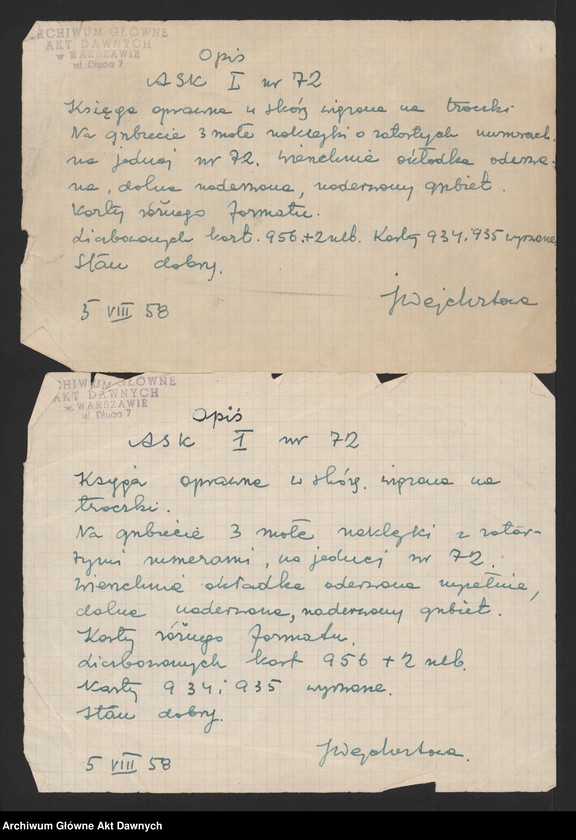 ARCHIWUM GŁÓWNE
AKT DAWNYCH
w WARSZAWIE
ul. Długa 7
Opis
ASK I nr 72
Księga oprawna w skórę wiązana na troczki
Na grzbiecie 3 małe naklejki o zatartych numerach,
na jednej nr 72. Wierzchnia okładka oderwa-
na, dolna naderwana, naderwany grzbiet.
Karty różnego formatu.
Liczbowanych kart. 956 + 2 nlb. Karty 934 i 935 wyrwane
Stan dobry.
5 VIII 58
JWejchertowa
ARCHIWUM GŁÓWNE
AKT DAWNYCH
w WARSZAWIE
ul. Długa 7
Opis
ASK I nr 72
Księga oprawna w skórę, wiązana na
troczki.
Na grzbiecie 3 małe naklejki z zatar-
tymi numerami, na jednej nr 72.
Wierzchnia okładka oderwana zupełnie,
dolna naderwana, naderwany grzbiet.
Karty różnego formatu.
Liczbowanych kart 956 + 2 nlb.
Karty 934 i 935 wyrwane.
Stan dobry.
5 VIII 58
JWejchertowa.
Archiwum Główne Akt Dawnych